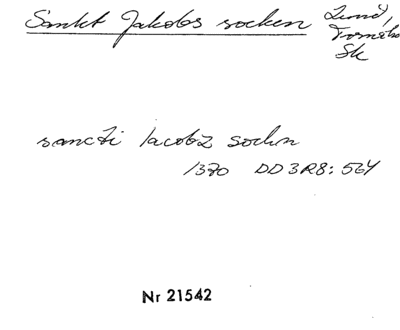 Sankt Jakobs socken Lund,
Torna hd
Sk
sancti Iacobz sockn
1370 DD3R8: 564
Nr 21542